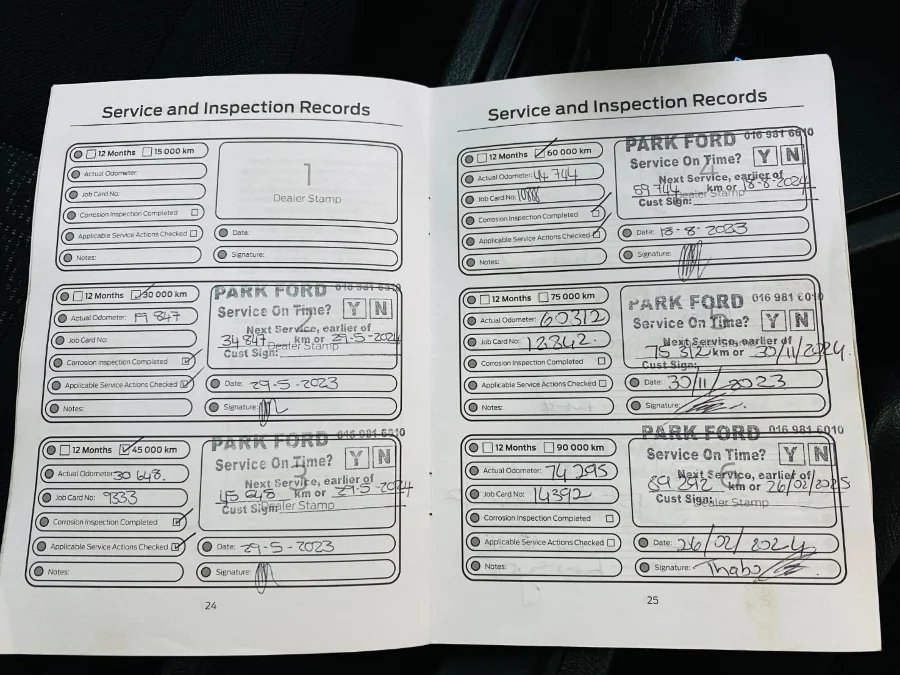 Service and Inspection Records
12 Months 15 000 km
Actual Odometer:
Job Card No:
Corrosion Inspection Completed
Applicable Service Actions Checked
Notes:
1
Dealer Stamp
Date:
Signature:
12 Months 30 000 km
Actual Odometer: 19 847
Job Card No:
Corrosion Inspection Completed
Applicable Service Actions Checked
Notes:
PARK FORD 016 981 6010
Service On Time? Y N
Next Service, earlier of
34 847 km or 29-5-2024
Cust Sign: Dealer Stamp
Date: 29-5-2023
Signature:
12 Months 45 000 km
Actual Odometer: 30 648.
Job Card No: 9333
Corrosion Inspection Completed
Applicable Service Actions Checked
Notes:
PARK FORD 016 981 6010
Service On Time? Y N
3
Next Service, earlier of
45 648 km or 29-5-2024
Cust Sign: Dealer Stamp
Date: 29-5-2023
Signature:
24
Service and Inspection Records
12 Months 60 000 km
Actual Odometer: 44 744
Job Card No:
Corrosion Inspection Completed
Applicable Service Actions Checked
Notes:
PARK FORD 016 981 6010
Service On Time? Y N
4
Next Service, earlier of
59 744 km or 18-8-2024
Cust Sign: Dealer Stamp
Date: 18-8-2023
Signature:
12 Months 75 000 km
Actual Odometer: 60312
Job Card No:
Corrosion Inspection Completed
Applicable Service Actions Checked
Notes:
PARK FORD 016 981 6010
Service On Time? Y N
5
Next Service, earlier of
75 312 km or 30/11/2024.
Cust Sign: Dealer Stamp
Date: 30/11/2023
Signature:
12 Months 90 000 km
Actual Odometer: 74 295
Job Card No: 14392
Corrosion Inspection Completed
Applicable Service Actions Checked
Notes:
PARK FORD 016 981 6010
Service On Time? Y N
6
Next Service, earlier of
89 292 km or 26/02/2025
Cust Sign: Dealer Stamp
Date: 26/02/2024
Signature: Thabo
25